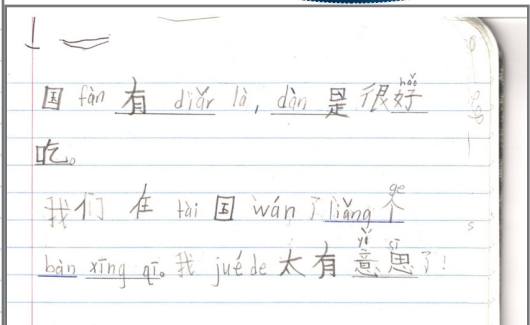 国 fàn 有 diǎr là, dàn 是 很好 hǎo
吃。
我们 在 tài 国 wán 了 liǎng 个 ge
bàn xīng qī。我 jué de 太有 意思 yì sī 了!